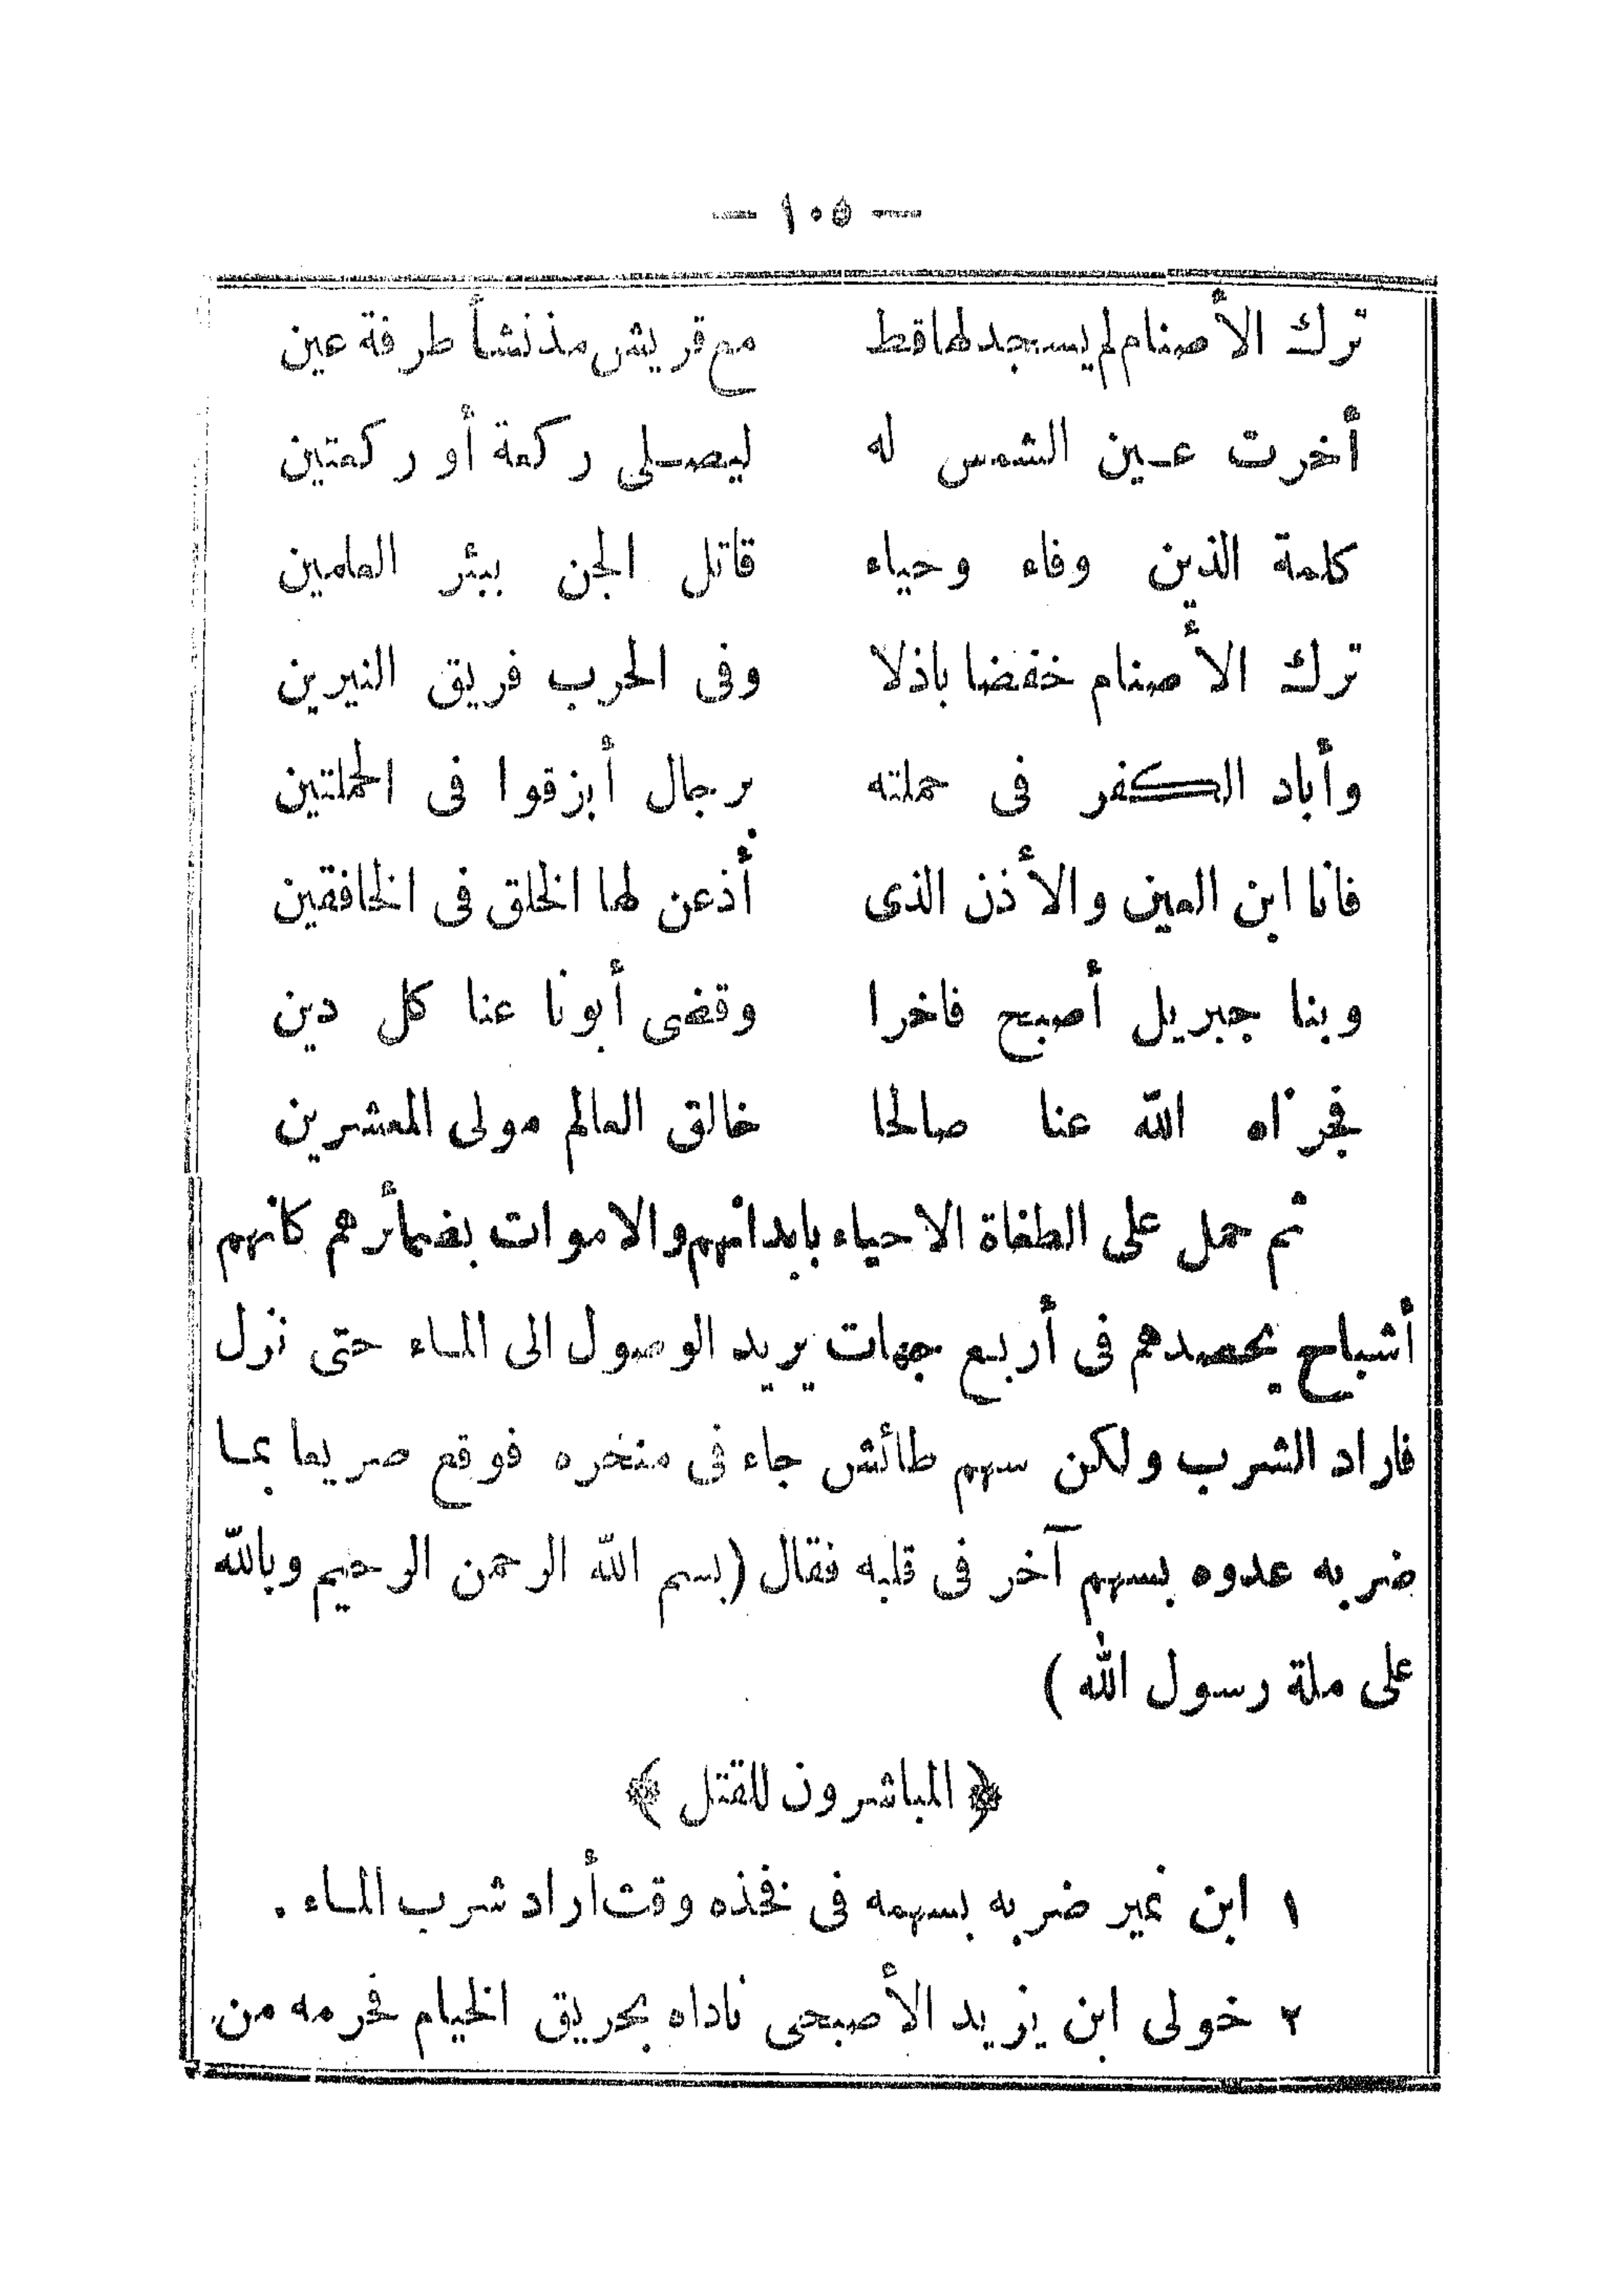 — ١٠٥ —
ترك الأصنام لم يسجد لها قط مع قريش مذ نشأ طرفة عين
أخرت عين الشمس له ليصلى ركعة أو ركعتين
كلمة الذين وفاء وحياء قاتل الجن ببئر العلمين
ترك الأصنام خفضا باذلا وفى الحرب فريق النيرين
وأباد الكفر فى حملته برجال أبزقوا فى الحملتين
فانا ابن العين والأذن الذى أذعن لها الخلق فى الخافقين
وبنا جبريل أصبح فاخرا وقضى أبونا عنا كل دين
فجزاه الله عنا صالحا خالق العالم مولى المعشرين
ثم حمل على الطغاة الاحياء بابدانهم والاموات بضمائرهم كانهم
أشباح يحصدهم فى أربع جهات يريد الوصول الى الماء حتى نزل
فاراد الشرب ولكن سهم طائش جاء فى منخره فوقع صريعا بما
ضربه عدوه بسهم آخر فى قلبه فقال (بسم الله الرحمن الرحيم وبالله
على ملة رسول الله )
﴿ المباشرون للقتل ﴾
١ ابن نمير ضربه بسهمه فى فخذه وقت أراد شرب الماء .
٢ خولى ابن يزيد الأصبحى ناداه بحريق الخيام فحرمه من